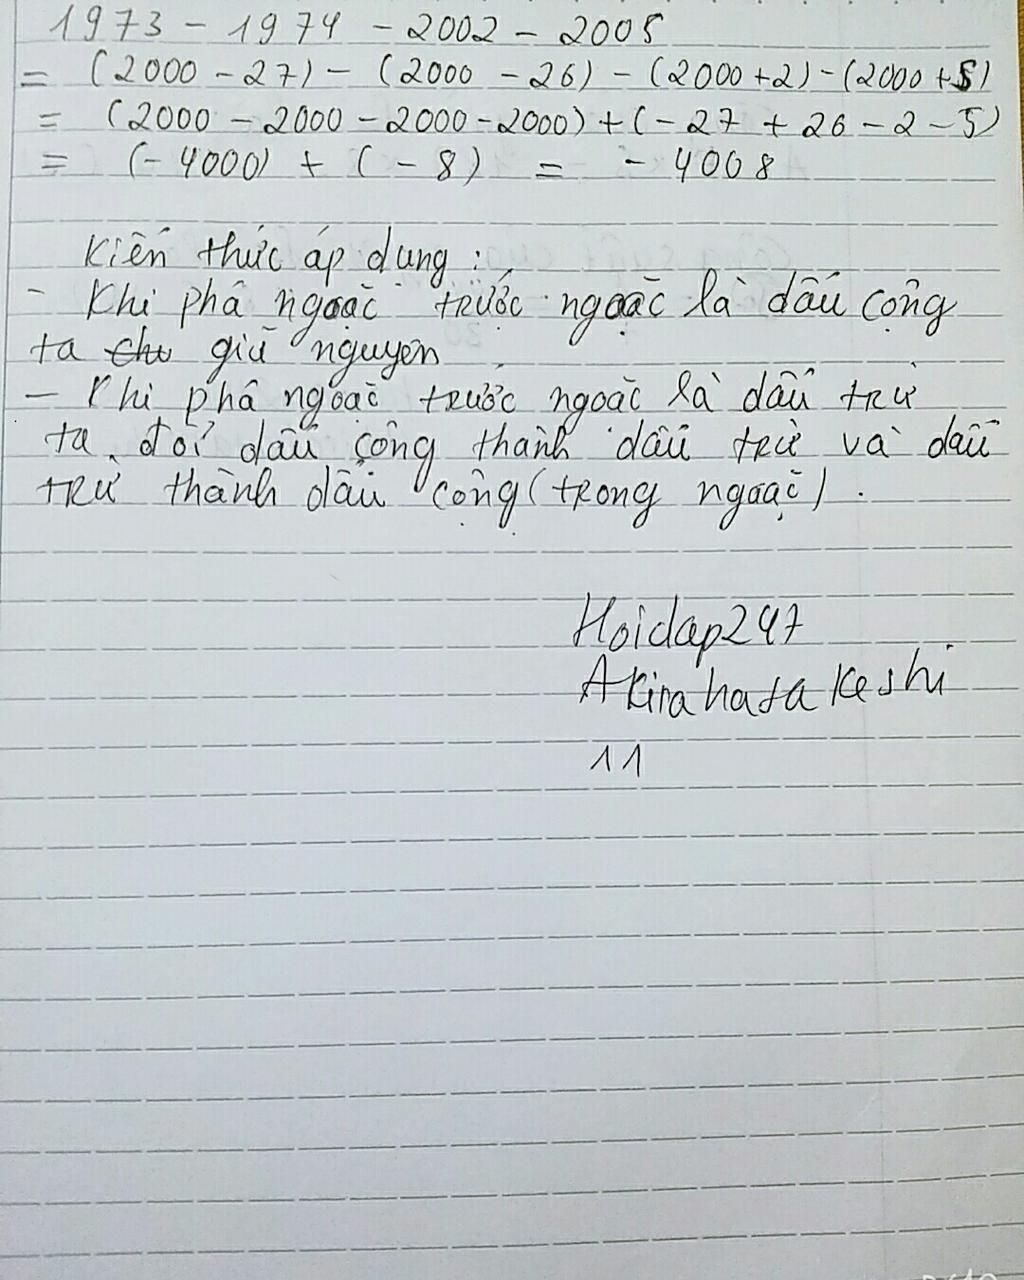 1973 - 1974 - 2002 - 2005
= (2000 - 27) - (2000 - 26) - (2000 + 2) - (2000 + 5)
= (2000 - 2000 - 2000 - 2000) + (- 27 + 26 - 2 - 5)
= (- 4000) + (- 8) = - 4008
Kiến thức áp dụng :
- Khi phá ngoặc trước ngoặc là dấu cộng
ta giữ nguyên
- Khi phá ngoặc trước ngoặc là dấu trừ
ta đổi dấu cộng thành dấu trừ và dấu
trừ thành dấu cộng (trong ngoặc) .
Hoidap247
Akirahatakeshi
11